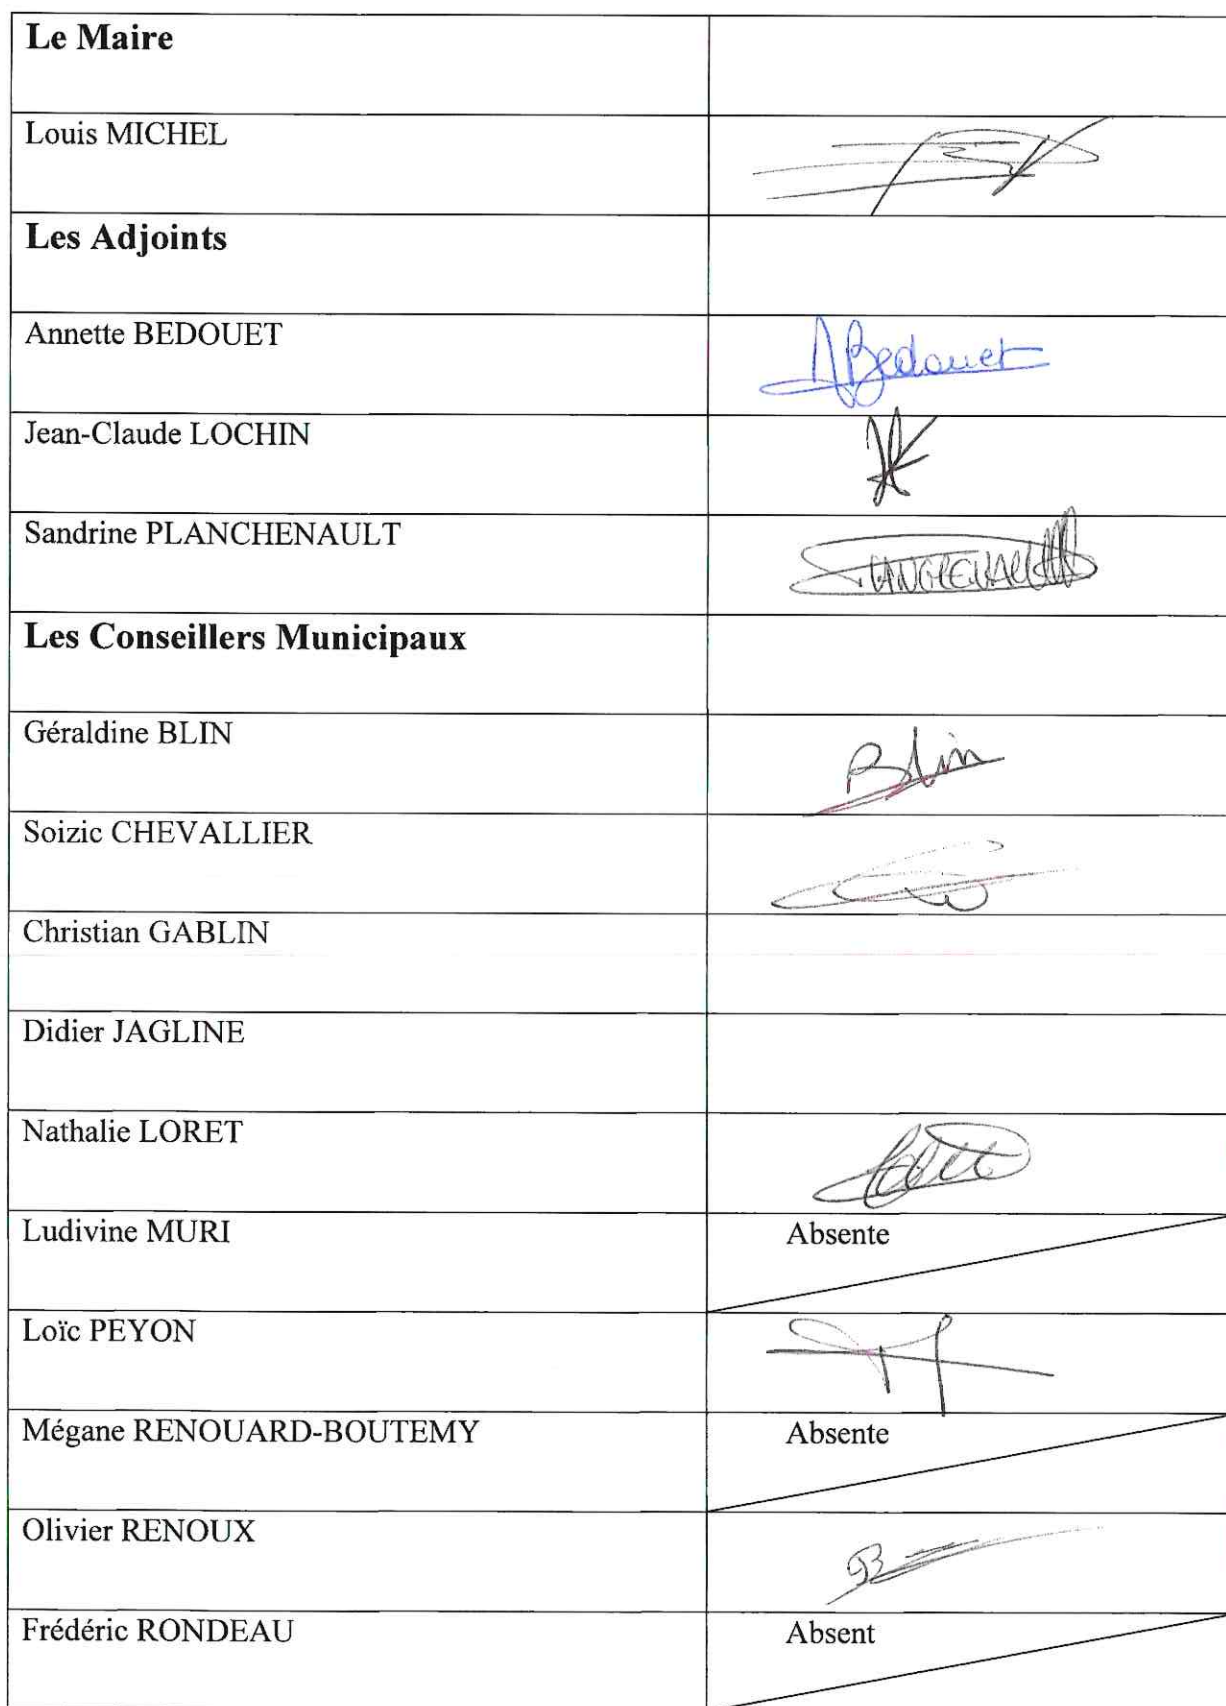 Le Maire
Louis MICHEL
Les Adjoints
Annette BEDOUET
ABedouet
Jean-Claude LOCHIN
Sandrine PLANCHENAULT
Les Conseillers Municipaux
Géraldine BLIN
Blin
Soizic CHEVALLIER
Christian GABLIN
Didier JAGLINE
Nathalie LORET
Ludivine MURI Absente
Loïc PEYON
Mégane RENOUARD-BOUTEMY Absente
Olivier RENOUX
Frédéric RONDEAU Absent